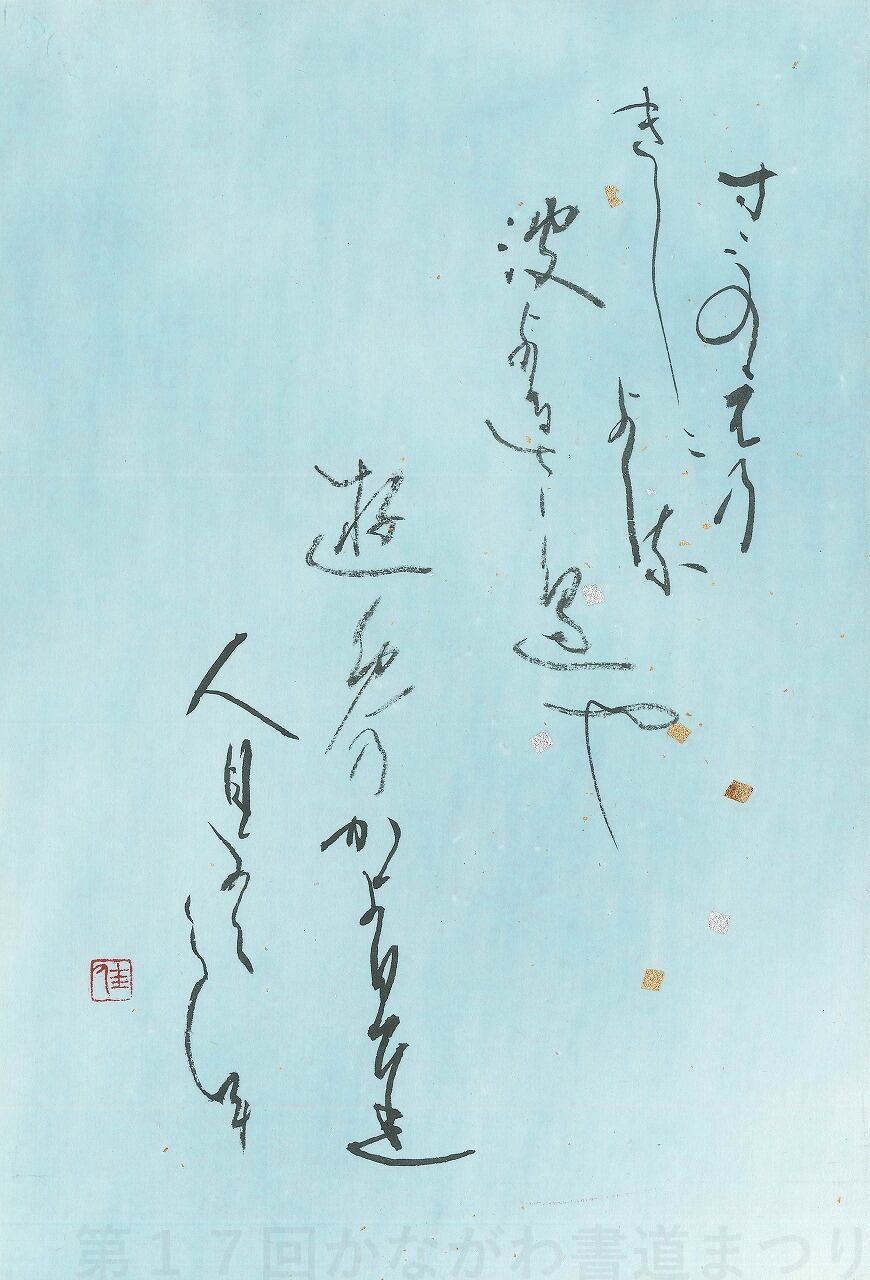 すみのえ乃
きしによる
波よるさへや
遊免乃かよひ路
人目よくらむ
佳
第17回かながわ書道まつり